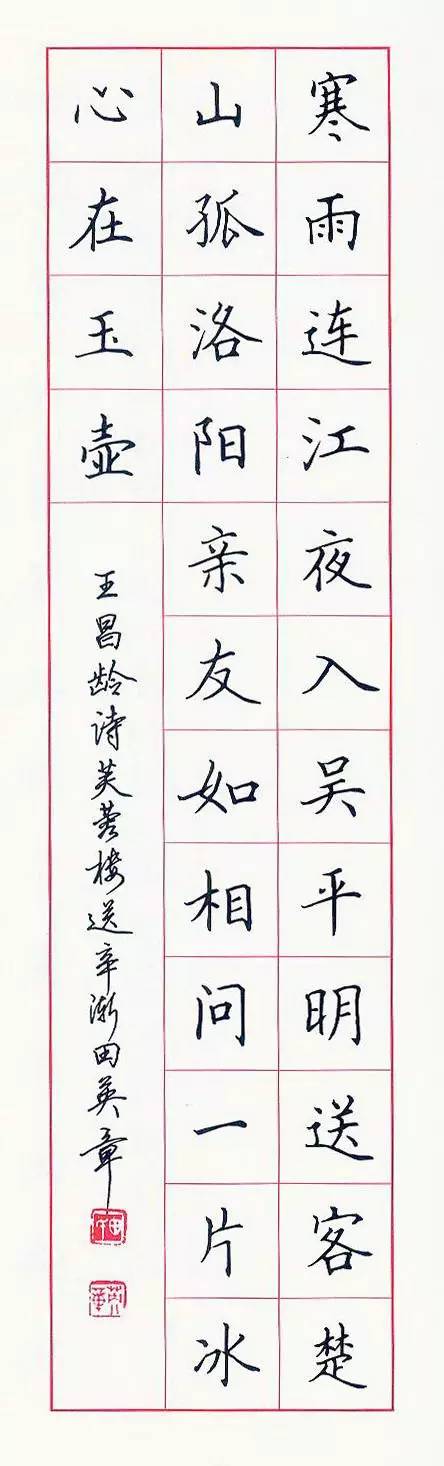 寒雨连江夜入吴平明送客楚
山孤洛阳亲友如相问一片冰
心在玉壶
王昌龄诗芙蓉楼送辛渐田英章
田
英章